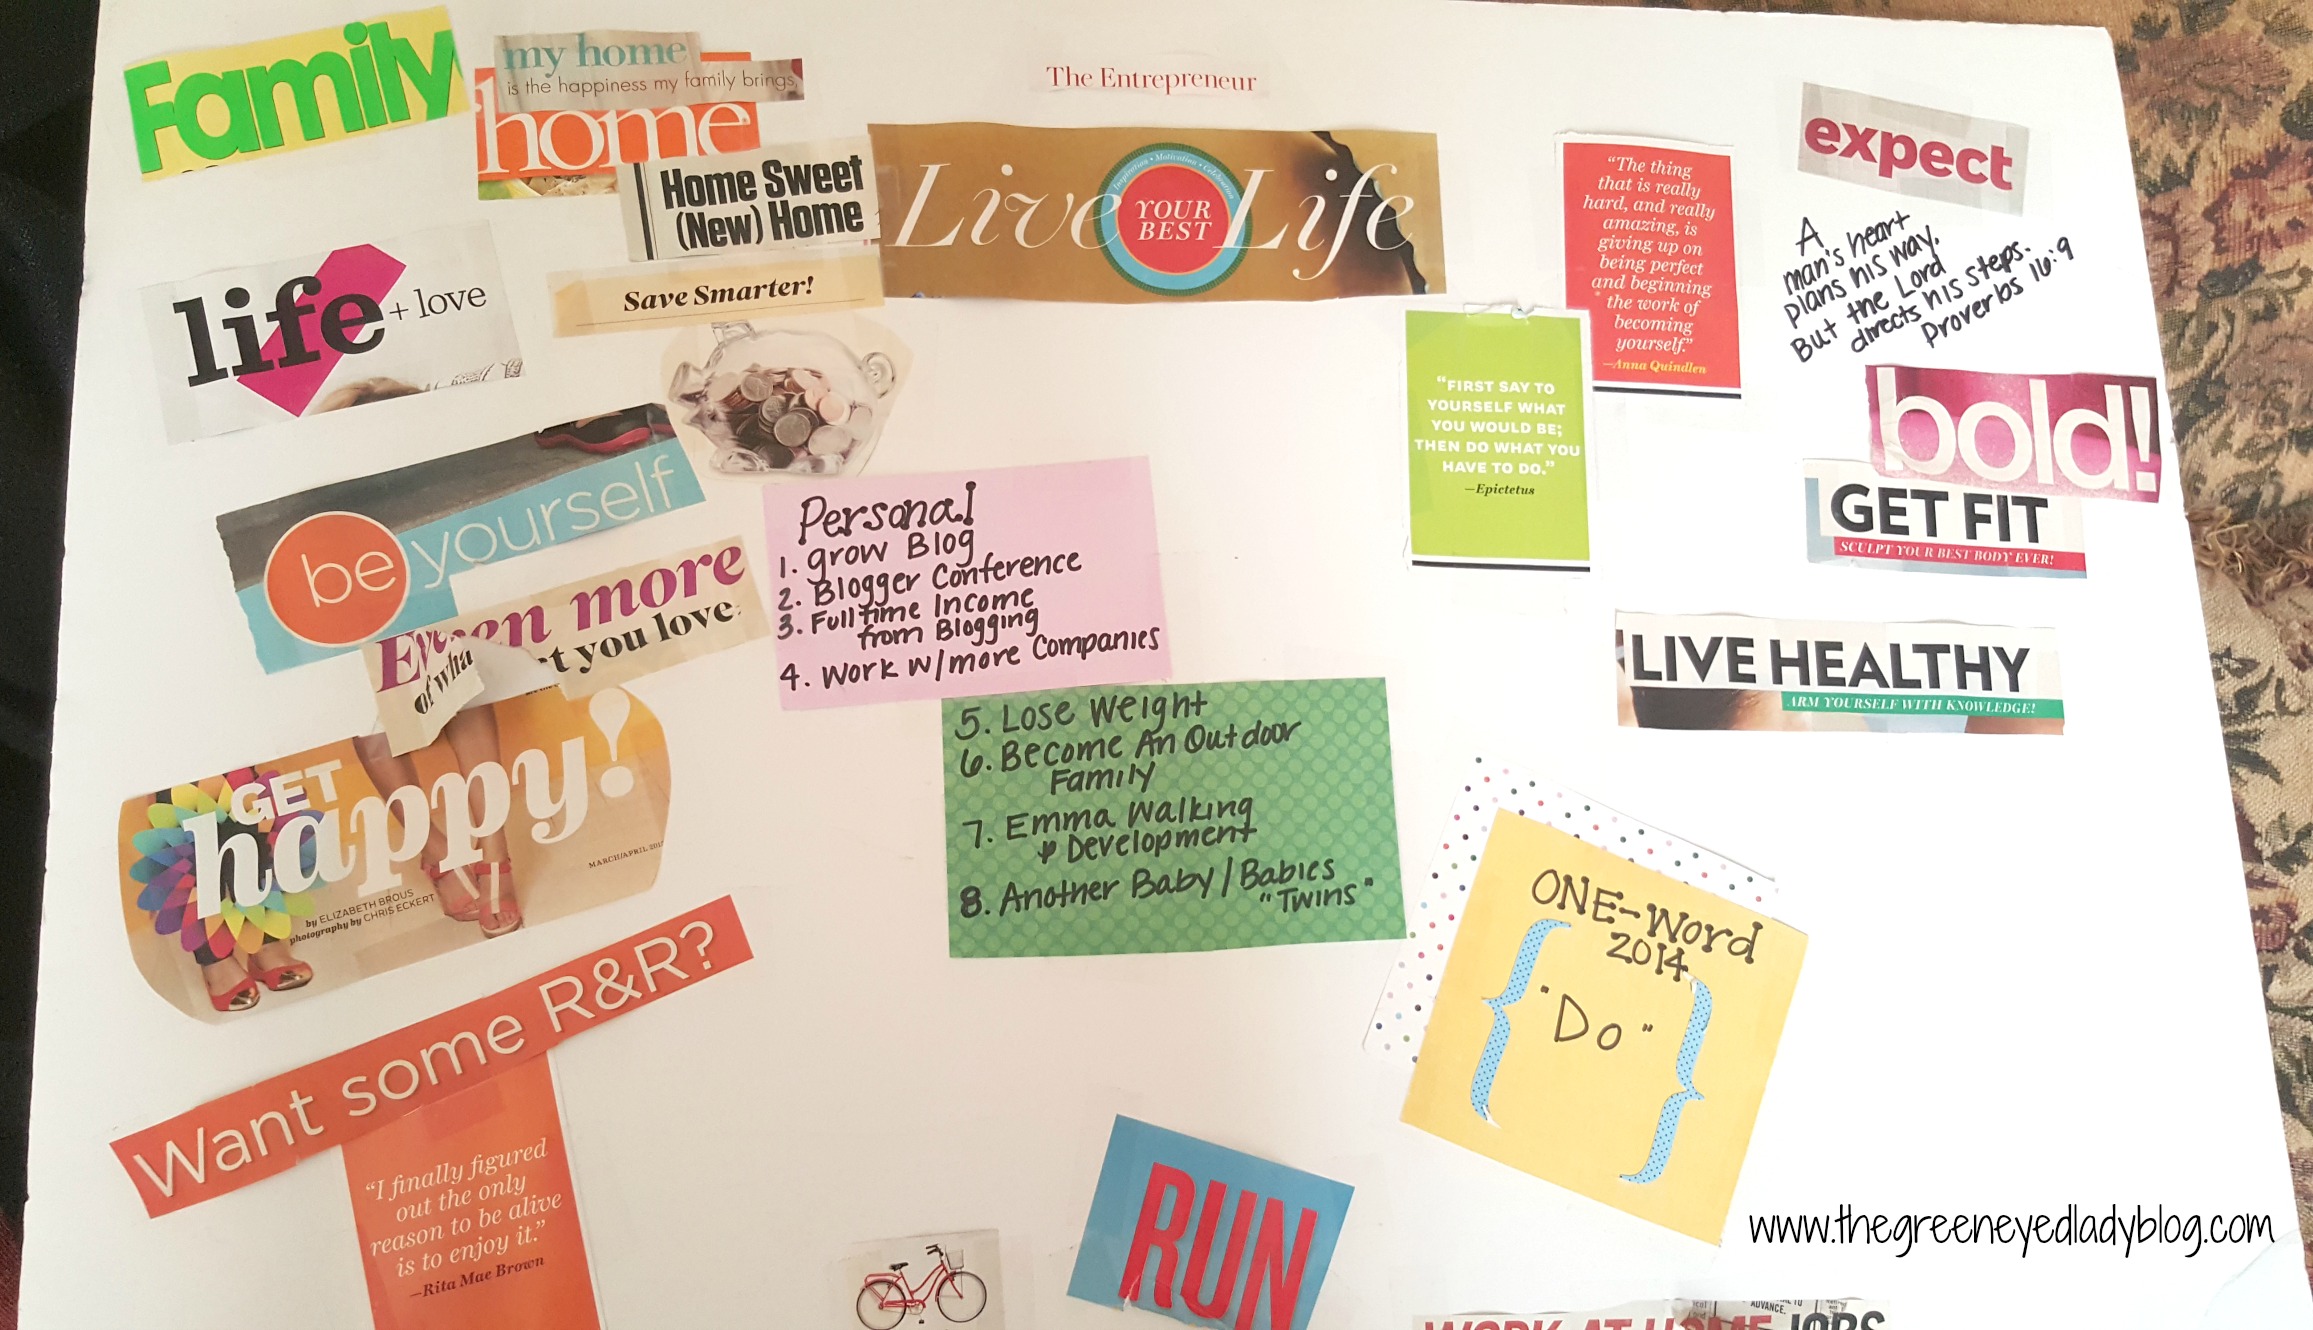 Family
my home
is the happiness my family brings.
home
Home Sweet
(New) Home
The Entrepreneur
Live YOUR BEST Life
Inspiration • Motivation • Celebration
"The thing
that is really
hard, and really
amazing, is
giving up on
being perfect
and beginning
the work of
becoming
yourself."
—Anna Quindlen
expect
A
man's heart
plans his way.
But the Lord
directs his steps.
Proverbs 16:9
life + love
Save Smarter!
"FIRST SAY TO
YOURSELF WHAT
YOU WOULD BE;
THEN DO WHAT YOU
HAVE TO DO."
—Epictetus
bold!
GET FIT
SCULPT YOUR BEST BODY EVER!
be yourself
Even more
of what you love.
Personal
1. Grow Blog
2. Blogger Conference
3. Fulltime Income
from Blogging
4. Work w/more Companies
LIVE HEALTHY
ARM YOURSELF WITH KNOWLEDGE!
5. Lose Weight
6. Become An Outdoor
Family
7. Emma Walking
& Development
8. Another Baby/Babies
"Twins"
GET
happy!
MARCH/APRIL
by ELIZABETH BROUS
photography by CHRIS ECKERT
ONE-Word
2014
"Do"
Want some R&R?
"I finally figured
out the only
reason to be alive
is to enjoy it."
—Rita Mae Brown
RUN
www.thegreeneyedladyblog.com
ADVANCE.
WORK AT HOME JOBS